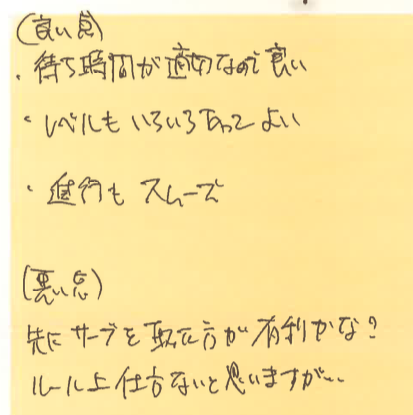 (良い点)
・待ち時間が適切なので良い
・レベルもいろいろあってよい
・進行もスムーズ
(悪い点)
先にサーブを取った方が有利かな？
ルール上仕方ないと思いますが…